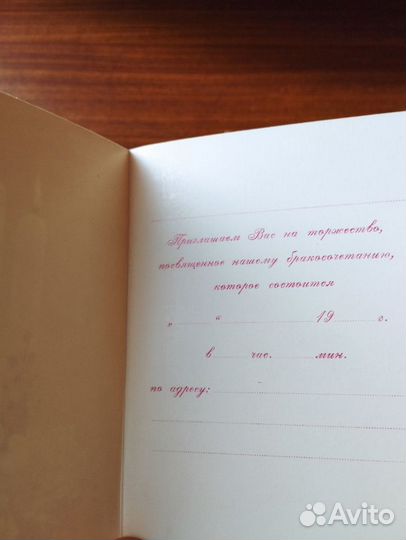 Приглашаем Вас на торжество,
посвященное нашему бракосочетанию,
которое состоится
„ “ 19 г.
в час. мин.
по адресу:
Avito